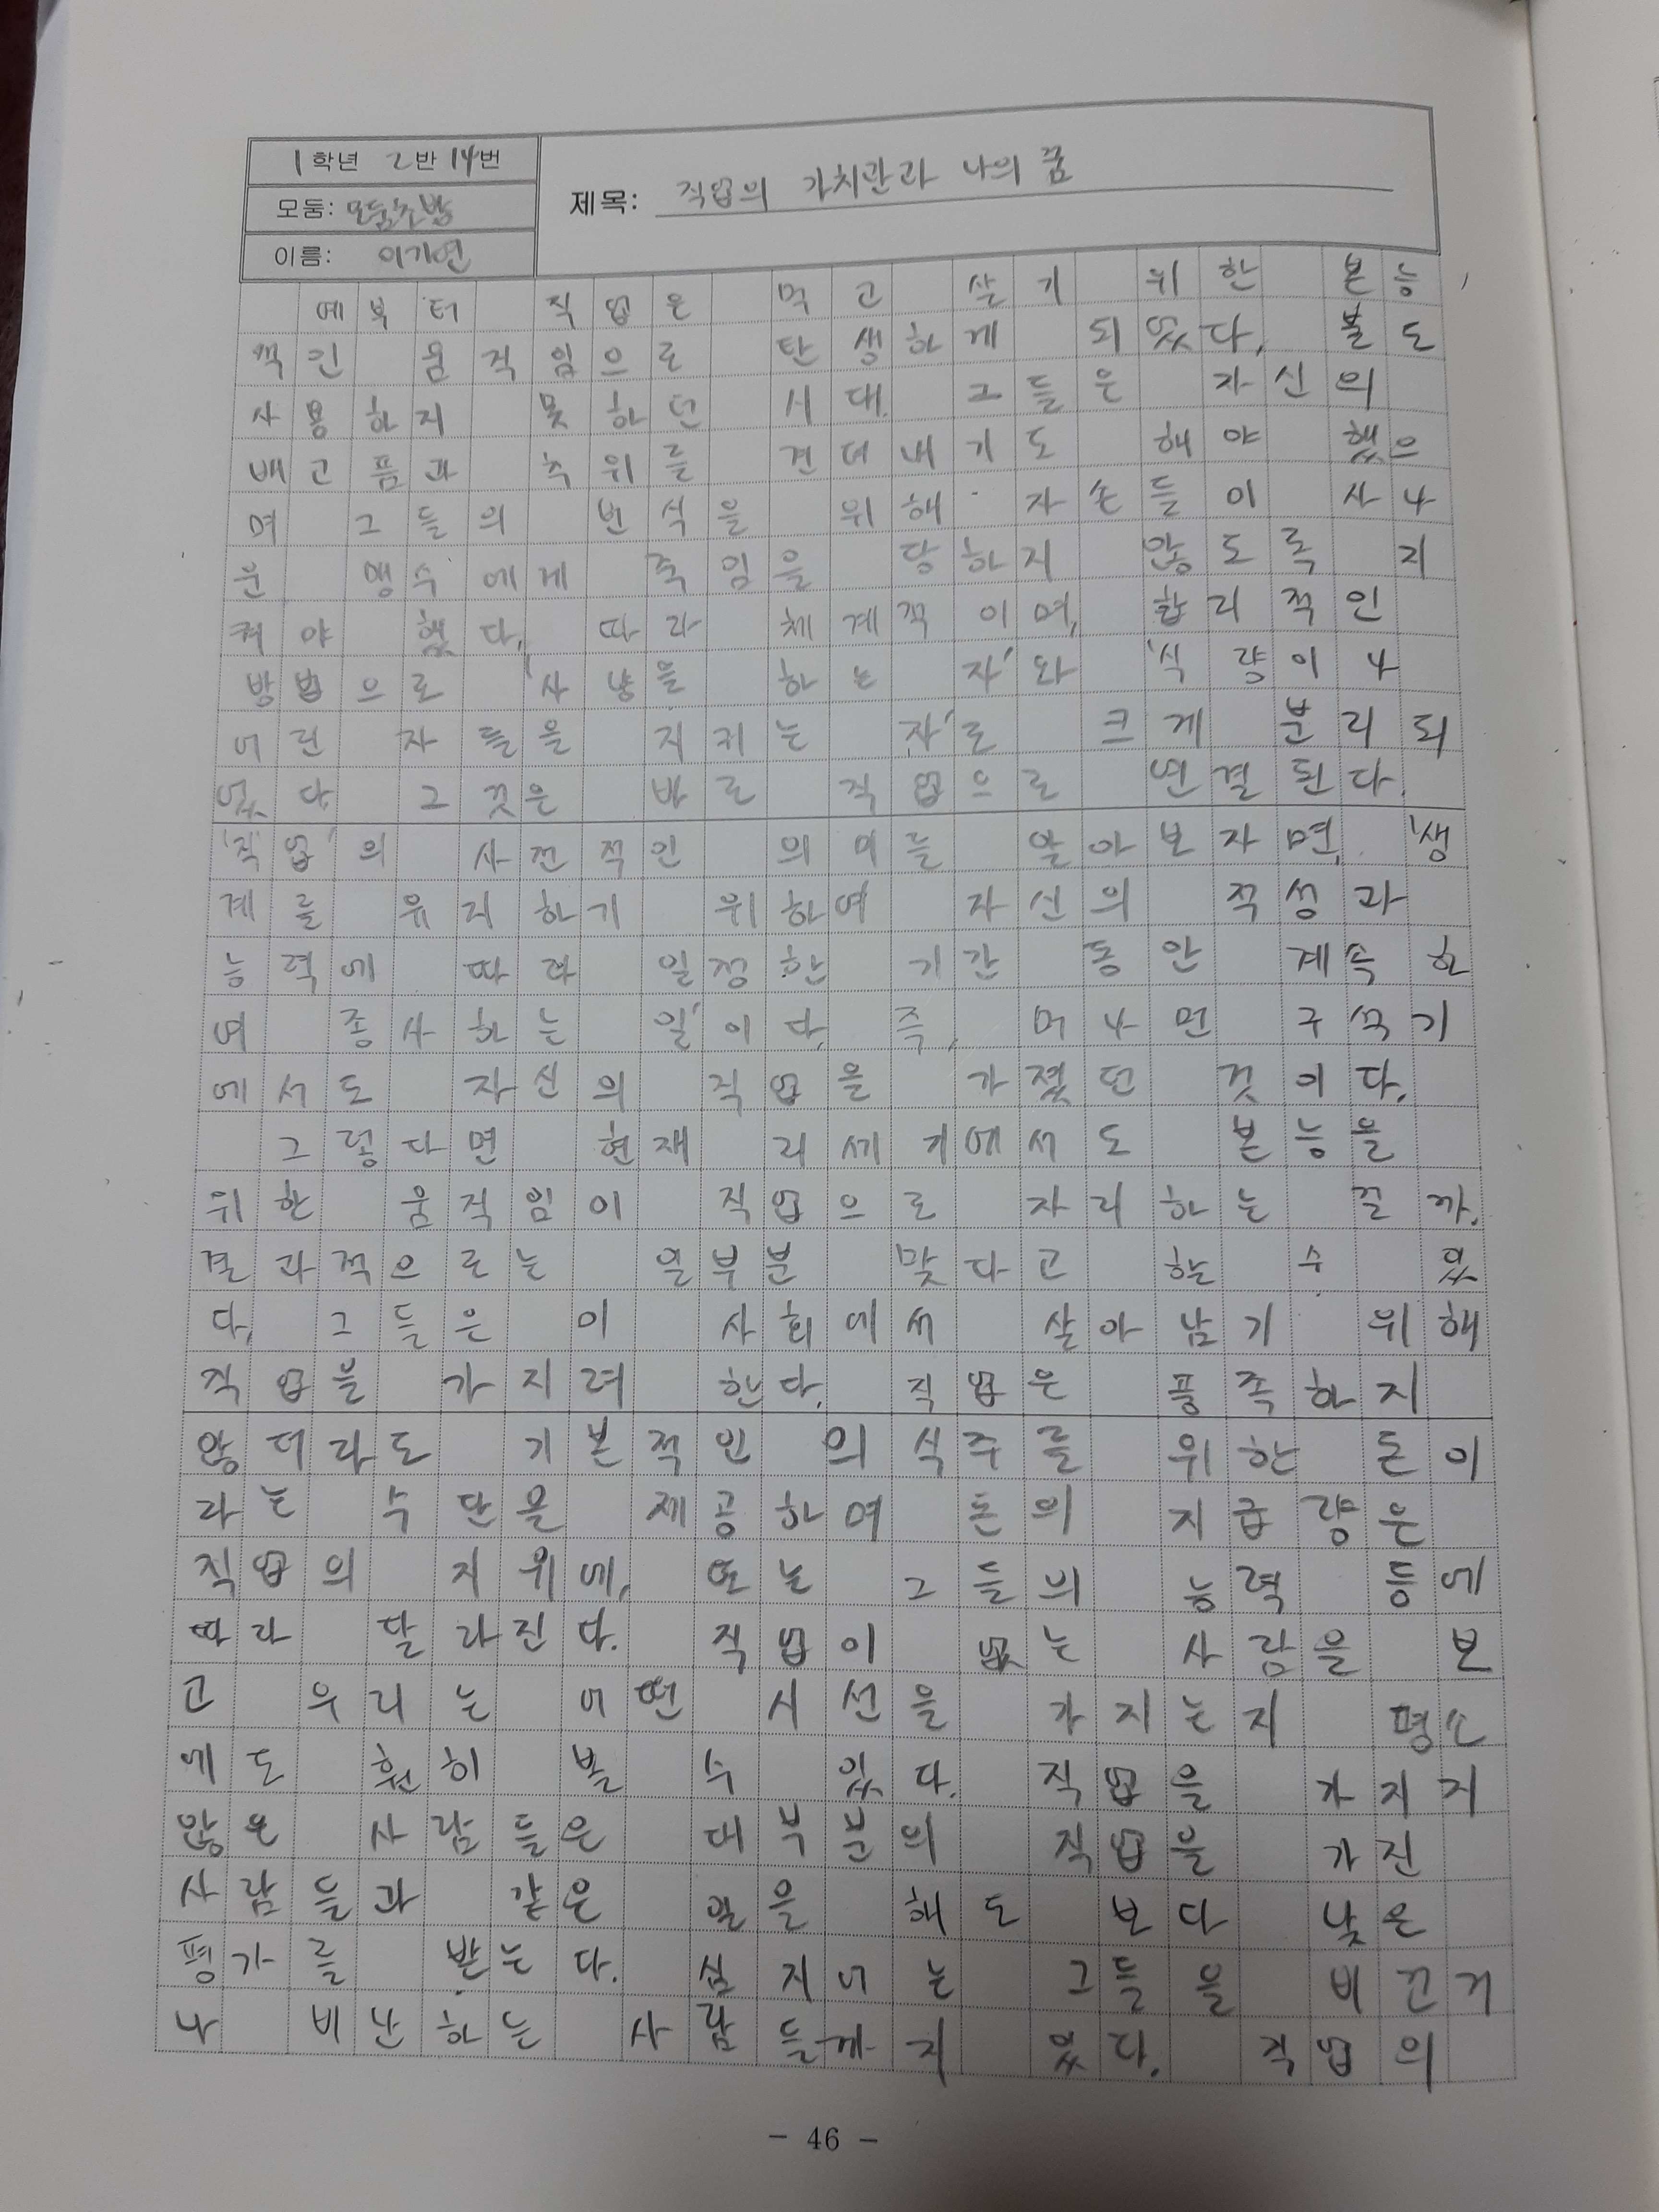 1학년 2반 14번
제목: 직업의 가치관과 나의 꿈
모둠:
이름: 이기연
예부터 직업은 먹고 살기 위한 본능
적인 움직임으로 탄생하게 되었다. 불도
사용하지 못하던 시대. 그들은 자신의
배고픔과 추위를 견뎌내기도 해야 했으
며 그들의 번식을 위해 자손들이 사나
운 맹수에게 죽임을 당하지 않도록 지
켜야 했다. 따라 체계적이며, 합리적인
방법으로 '사냥을 하는 자'와 '식량이나
어린 자들을 지키는 자'로 크게 분리되
었다. 그것은 바로 직업으로 연결된다.
'직업'의 사전적인 의미를 알아보자면, '생
계를 유지하기 위하여 자신의 적성과
능력에 따라 일정한 기간 동안 계속하
여 종사하는 일'이다. 즉, 머나먼 구석기
에서도 자신의 직업을 가졌던 것이다.
그렇다면 현재 21세기에서도 본능을
위한 움직임이 직업으로 자리하는 걸까.
결과적으로는 일부분 맞다고 할 수 있
다. 그들은 이 사회에서 살아남기 위해
직업을 가지려 한다. 직업은 풍족하지
않더라도 기본적인 의식주를 위한 돈이
라는 수단을 제공하며 돈의 지급량은
직업의 지위에, 또는 그들의 능력 등에
따라 달라진다. 직업이 없는 사람을 보
고 우리는 어떤 시선을 가지는지 평소
에도 훤히 볼 수 있다. 직업을 가지지
않은 사람들은 대부분의 직업을 가진
사람들과 같은 일을 해도 보다 낮은
평가를 받는다. 심지어는 그들을 비꼬거
나 비난하는 사람들까지 있다. 직업의
- 46 -